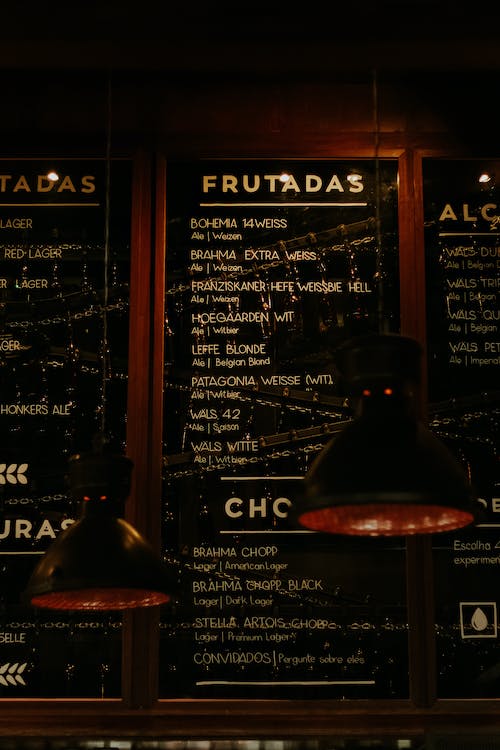 TADAS
LAGER
RED LAGER
LAGER
LAGER
HONKERS ALE
URAS
SELLE
FRUTADAS
BOHEMIA 14WEISS
Ale | Weizen
BRAHMA EXTRA WEISS
Ale | Weizen
FRANZISKANER HEFE WEISSBIE HELL
Ale | Weizen
HOEGAARDEN WIT
Ale | Witbier
LEFFE BLONDE
Ale | Belgian Blond
PATAGONIA WEISSE (WIT)
Ale | Witbier
WALS 42
Ale | Saison
WALS WITTE
Ale | Witbier
CHO
BRAHMA CHOPP
Lager | American Lager
BRAHMA CHOPP BLACK
Lager | Dark Lager
STELLA ARTOIS CHOPP
Lager | Premium Lager
CONVIDADOS | Pergunte sobre eles
ALC
WALS DUB
Ale | Belgian D
WALS TRIP
Ale | Belgian
WALS QU
Ale | Belgian
WALS PET
Ale | Imperia
Escolha 4
experimen